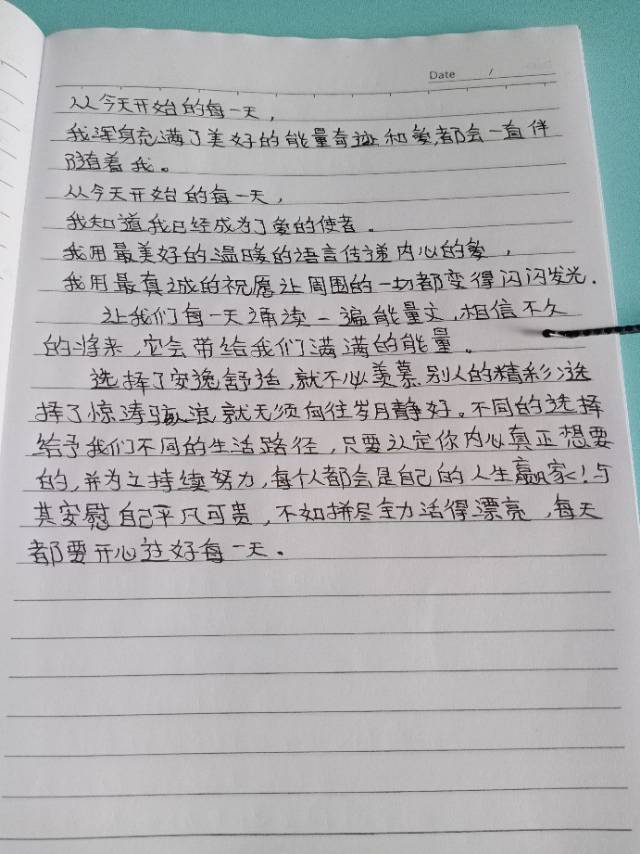 Date /
从今天开始的每一天，
我浑身充满了美好的能量奇迹和爱,都会一直伴
随着我。
从今天开始的每一天，
我知道我已经成为了爱的使者。
我用最美好的温暖的语言传递内心的爱，
我用最真诚的祝愿让周围的一切都变得闪闪发光.
让我们每一天诵读一遍能量文,相信不久
的将来,它会带给我们满满的能量。
选择了安逸舒适,就不必羡慕别人的精彩;选
择了惊涛骇浪就无须向往岁月静好。不同的选择
给予我们不同的生活路径,只要认定你内心真正想要
的,并为之持续努力,每个人都会是自己的人生赢家!与
其安慰自己平凡可贵,不如拼尽全力活得漂亮,每天
都要开心过好每一天。